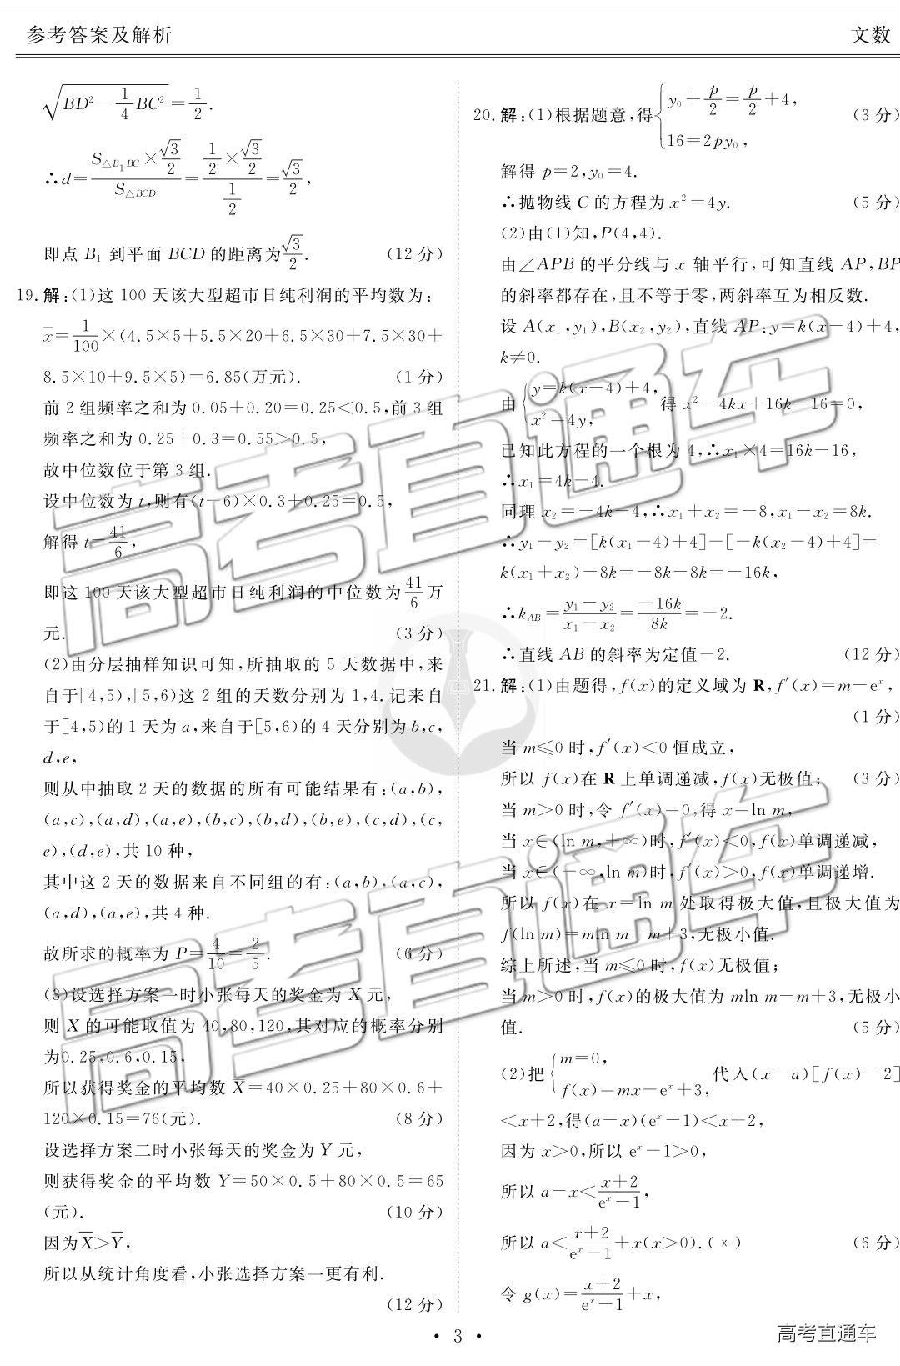 参考答案及解析
文数
√(BD²-1/4BC²)=1/2.
∴d=(S△B₁DC×√3/2)/S△BCD=(1/2×√3/2)/(1/2)=√3/2,
即点 B₁ 到平面 BCD 的距离为√3/2. (12分)
19.解:(1)这 100 天该大型超市日纯利润的平均数为:
x̄=1/100×(4.5×5+5.5×20+6.5×30+7.5×30+
8.5×10+9.5×5)=6.85(万元). (1分)
前 2 组频率之和为 0.05+0.20=0.25<0.5,前 3 组
频率之和为 0.25+0.3=0.55>0.5,
故中位数位于第 3 组.
设中位数为 t,则有(t-6)×0.3+0.25=0.5,
解得 t=41/6,
即这 100 天该大型超市日纯利润的中位数为41/6万
元. (3分)
(2)由分层抽样知识可知,所抽取的 5 天数据中,来
自于[4,5),[5,6)这 2 组的天数分别为 1,4.记来自
于[4,5)的 1 天为 a,来自于[5,6)的 4 天分别为 b,c,
d,e,
则从中抽取 2 天的数据的所有可能结果有:(a,b),
(a,c),(a,d),(a,e),(b,c),(b,d),(b,e),(c,d),(c,
e),(d,e),共 10 种,
其中这 2 天的数据来自不同组的有:(a,b),(a,c),
(a,d),(a,e),共 4 种.
故所求的概率为 P=4/10=2/5. (6分)
(3)设选择方案一时小张每天的奖金为 X 元,
则 X 的可能取值为 40,80,120,其对应的概率分别
为0.25,0.6,0.15,
所以获得奖金的平均数 X̄=40×0.25+80×0.6+
120×0.15=76(元). (8分)
设选择方案二时小张每天的奖金为 Y 元,
则获得奖金的平均数 Y=50×0.5+80×0.5=65
(元). (10分)
因为X̄>Ȳ,
所以从统计角度看,小张选择方案一更有利.
(12分)
20.解:(1)根据题意,得{y₀-p/2=p/2+4, 16=2py₀, (3分)
解得 p=2,y₀=4.
∴抛物线 C 的方程为 x²=4y. (5分)
(2)由(1)知,P(4,4).
由∠APB 的平分线与 x 轴平行,可知直线 AP,BP
的斜率都存在,且不等于零,两斜率互为相反数.
设 A(x₁,y₁),B(x₂,y₂),直线 AP:y=k(x-4)+4,
k≠0.
由{y=k(x-4)+4, x²=4y, 得 x²-4kx+16k-16=0,
已知此方程的一个根为 4,∴x₁×4=16k-16,
∴x₁=4k-4.
同理 x₂=-4k-4,∴x₁+x₂=-8,x₁-x₂=8k.
∴y₁-y₂=[k(x₁-4)+4]-[-k(x₂-4)+4]=
k(x₁+x₂)-8k=-8k-8k=-16k,
∴k_AB=(y₁-y₂)/(x₁-x₂)=-16k/8k=-2.
∴直线 AB 的斜率为定值-2. (12分)
21.解:(1)由题得,f(x)的定义域为 R,f′(x)=m-eˣ,
(1分)
当 m≤0 时,f′(x)<0 恒成立,
所以 f(x)在 R 上单调递减,f(x)无极值; (3分)
当 m>0 时,令 f′(x)=0,得 x=ln m,
当 x∈(ln m,+∞)时,f′(x)<0,f(x)单调递减,
当 x∈(-∞,ln m)时,f′(x)>0,f(x)单调递增.
所以 f(x)在 x=ln m 处取得极大值,且极大值为
f(ln m)=mln m-m+3,无极小值.
综上所述,当 m≤0 时,f(x)无极值;
当 m>0 时,f(x)的极大值为 mln m-m+3,无极小
值. (5分)
(2)把{m=0, f(x)=mx-eˣ+3, 代入(x-a)[f(x)-2]
<x+2,得(a-x)(eˣ-1)<x-2,
因为 x>0,所以 eˣ-1>0,
所以 a-x<(x+2)/(eˣ-1),
所以 a<(x+2)/(eˣ-1)+x(x>0).(*) (6分)
令 g(x)=(x-2)/(eˣ-1)+x,
• 3 •
高考直通车
高考直通车
高考直通车